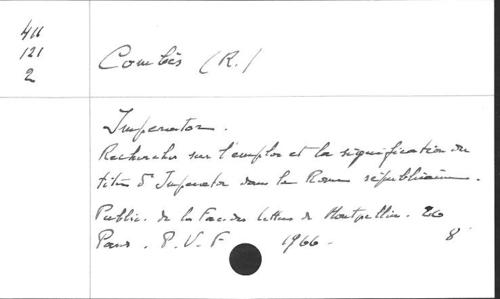 411
121
2
Combès (R.)
Imperator.
Recherches sur l'emploi et la signification du
titre d'Imperator dans la Rome républicaine.
Public. de la Fac. des lettres de Montpellier. 26
Paris. P.U.F 1966. 8°